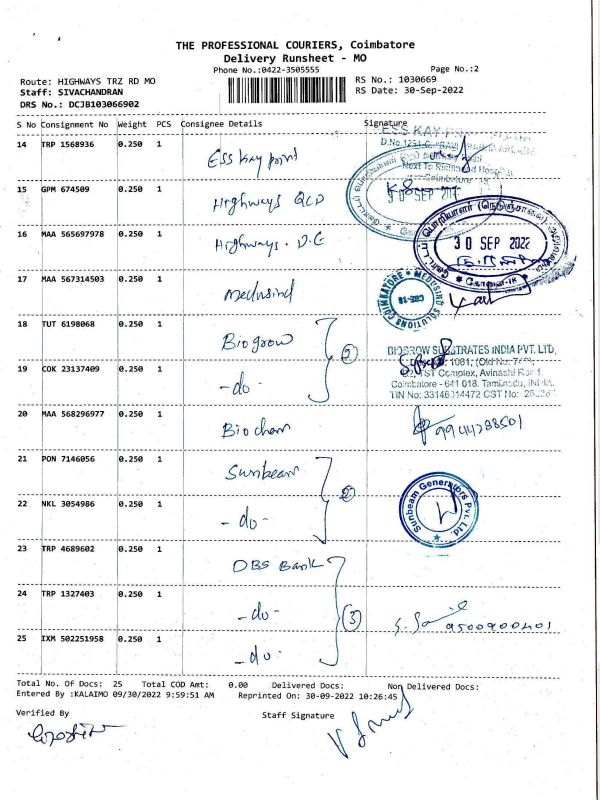 THE PROFESSIONAL COURIERS, Coimbatore
Delivery Runsheet - MO
Phone No.:0422-3505555
Page No.:2
Route: HIGHWAYS TRZ RD MO
RS No.: 1030669
Staff: SIVACHANDRAN
RS Date: 30-Sep-2022
DRS No.: DCJB103066902
S No Consignment No Weight PCS Consignee Details Signature
14 TRP 1568936 0.250 1 Ess Kay point
ESS KAY
15 GPM 674509 0.250 1 Highways QCD
30 SEP
16 MAA 565697978 0.250 1 Highways. D.E
30 SEP 2022
17 MAA 567314503 0.250 1 Medusind
MEDUSIND SOLUTIONS COIMBATORE
CBE-18
18 TUT 6198068 0.250 1 Biogrow
2
BIOGROW SUBSTRATES INDIA PVT. LTD,
TST Complex, Avinashi Road
Coimbatore - 641 018. Tamilnadu, INDIA.
TIN No: 33146314472 CST No:
19 COK 23137409 0.250 1 -do-
20 MAA 568296977 0.250 1 Biochem
9944288501
21 PON 7146056 0.250 1 Sunbeam
2
Sunbeam Generators Pvt. Ltd.
22 NKL 3054986 0.250 1 -do-
23 TRP 4689602 0.250 1 DBS Bank
24 TRP 1327403 0.250 1 -do-
3
25 IXM 502251958 0.250 1 -do-
Total No. Of Docs: 25 Total COD Amt: 0.00 Delivered Docs: Non Delivered Docs:
Entered By :KALAIMO 09/30/2022 9:59:51 AM Reprinted On: 30-09-2022 10:26:45
Verified By
Staff Signature